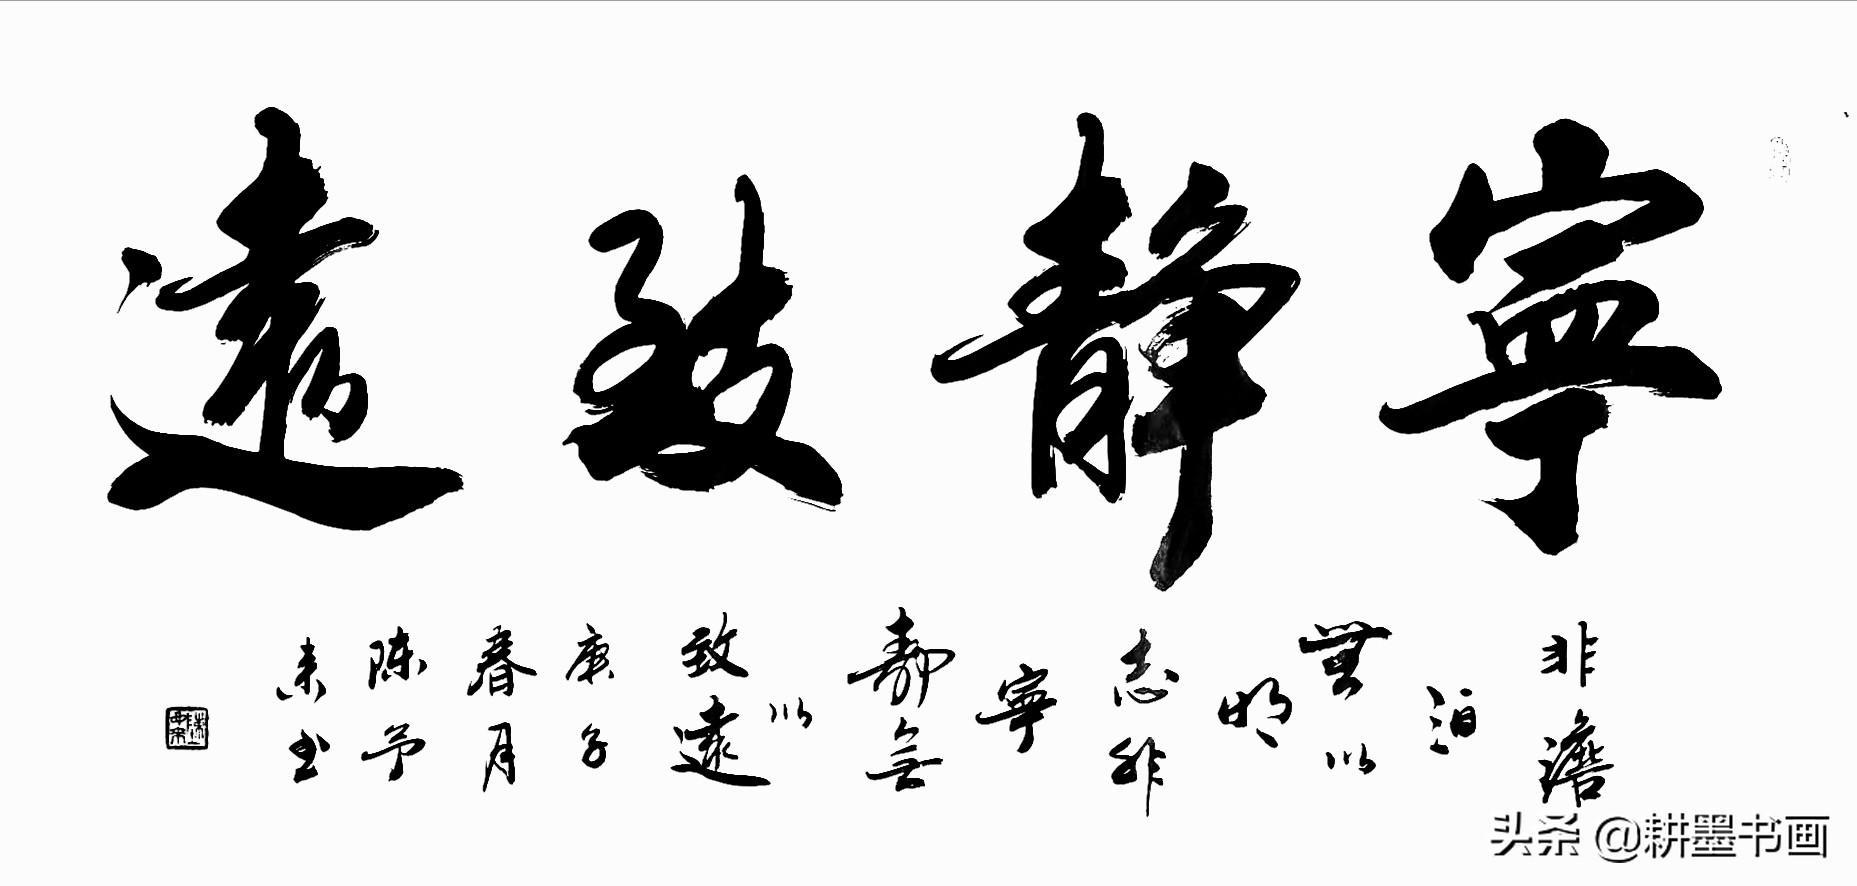 寧静致遠
非澹
泊
無以
明
志非
寧
静無
以
致遠
庚子
春月
陈予
来书
头条 @耕墨书画